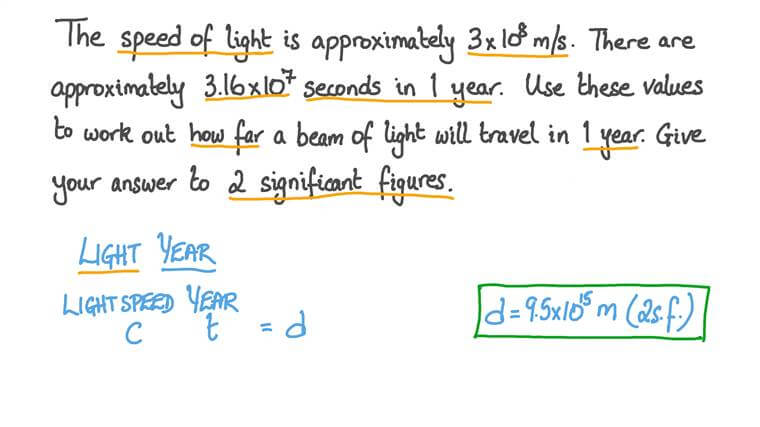 The speed of light is approximately 3×10⁸ m/s. There are
approximately 3.16×10⁷ seconds in 1 year. Use these values
to work out how far a beam of light will travel in 1 year. Give
your answer to 2 significant figures.
LIGHT YEAR
LIGHTSPEED YEAR
C t = d
d = 9.5×10¹⁵ m (2s.f.)